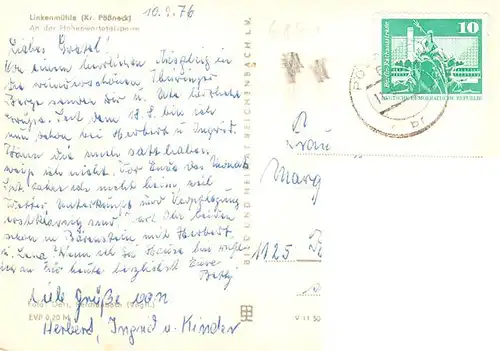 Linkenmühle (Kr. Pößneck)
An der Hohenwartetalsperre
10.9.76
Liebes Gretel!
Von einem herrlichen Ausflug in
die wunderschönen Thüringer
Berge senden Dir u. Ute herzliche
Grüße. Seit dem 18.8. bin ich
nun schon bei Herbert u. Ingrid.
Wann die mich satt haben
weiß ich nicht. Vor Ende des Monats
Spt. fahre ich nicht heim, weil
Wetter Unterkunft und Verpflegung
erstklassig sind
schon in Bärenstein mit Herbert
u. Lena. Wenn ich zu Hause bin
an Euch heute herzlichst Eure
Betty
Liebe Grüße von
Herbert, Ingrid u. Kinder
EVP 0,20 M
BILD UND HEIMAT REICHENBACH i. V.
V 11 50
10
DEUTSCHE DEMOKRATISCHE REPUBLIK
Frau
Marg
1125